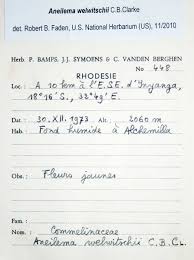 Aneilema welwitschii C.B.Clarke
det. Robert B. Faden, U.S. National Herbarium (US), 11/2010
Herb. P. BAMPS, J.J. SYMOENS & C. VANDEN BERGHEN
No 448
RHODESIE
Loc. : A 10 km à l'E.S.E. d'Inyanga,
18°16'S., 33°49'E.
Dat. : 30.XII.1973 Alt. : 2060 m
Hab. : Fond humide à Alchemilla
Obs. : Fleurs jaunes
Fam. :
Nom. : Commelinaceae
Aneilema welwitschii C.B.Cl.